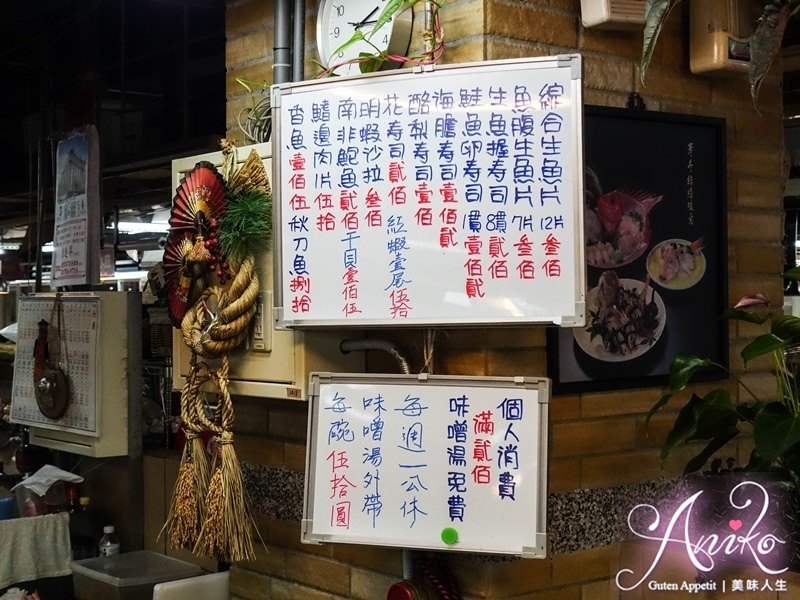 綜合生魚片 12片 叁佰
魚腹生魚片 7片 叁佰
生魚握寿司 8貫 貳佰
鮭魚卵寿司 1貫 壹佰貳
海膽寿司 壹佰貳
酪梨寿司 壹佰
花寿司 貳佰 紅蝦壹尾 伍拾
明蝦沙拉 叁佰
南非鮑魚 貳佰 干貝 壹佰伍
鰭邊肉 1片 伍拾
香魚 壹佰伍 秋刀魚 捌拾
個人消費
滿貳佰
味噌湯免費
每週一公休
味噌湯外帶
每碗 伍拾圓
Aniko
Guten Appetit | 美味人生